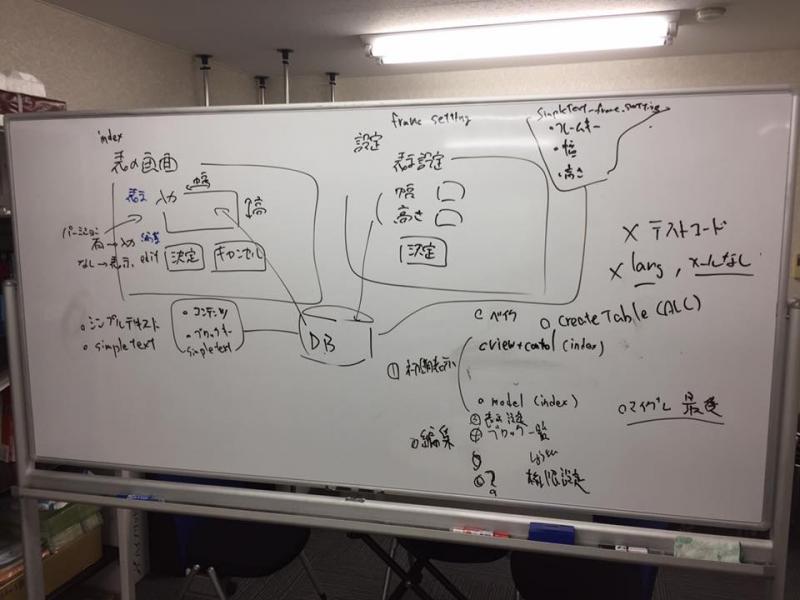 index
表の画面
表示 入力
幅
高
パーミッション
有→入力 編集
なし→表示 edit
決定 キャンセル
○シンプルテキスト
○simpletext
・コンテンツ
・ブロックキー
simpletext
DB
frame setting
設定
表示設定
幅
高さ
決定
simpletext_frame_setting
・フレームキー
・幅
・高さ
× テストコード
× lang, メールなし
○ createTable (ALC)
①初期表示
○ model (index)
○編集
ブロック一覧
権限設定
○マイグレ 最速